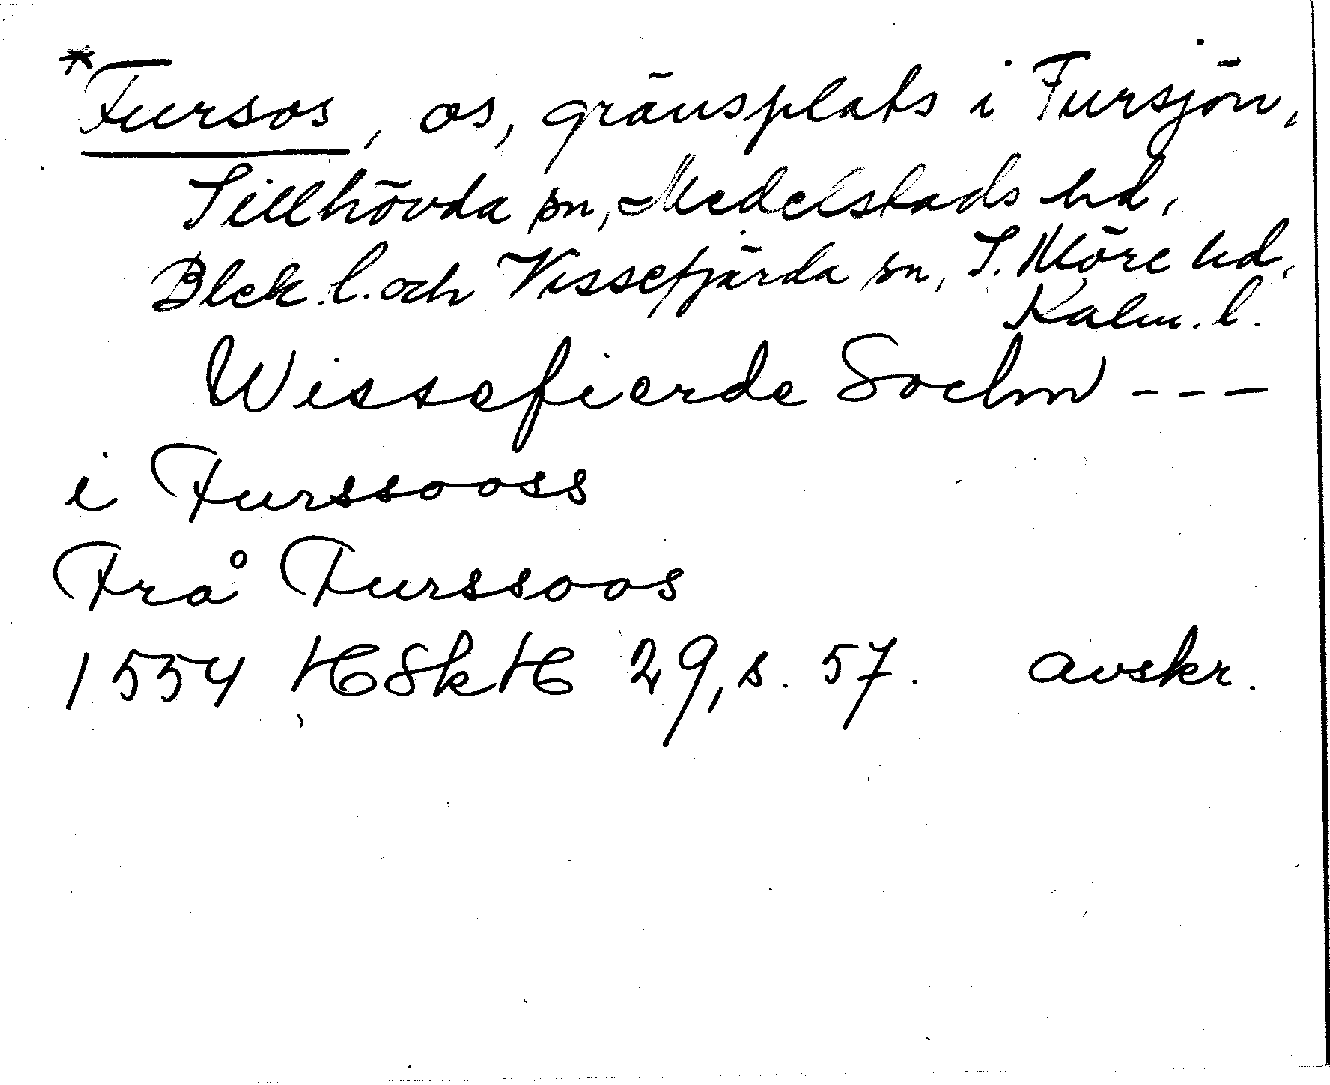 *Fursos, os, gränsplats i Fursjön,
Tillhövda sn, Medelstads hd,
Blek. l. och Vissefjärda sn, S. Möre hd,
Kalm. l.
Wissefierde Sochn ---
i Furssooss
Frå Furssoos
1554 HSkH 29, s. 57. avskr.